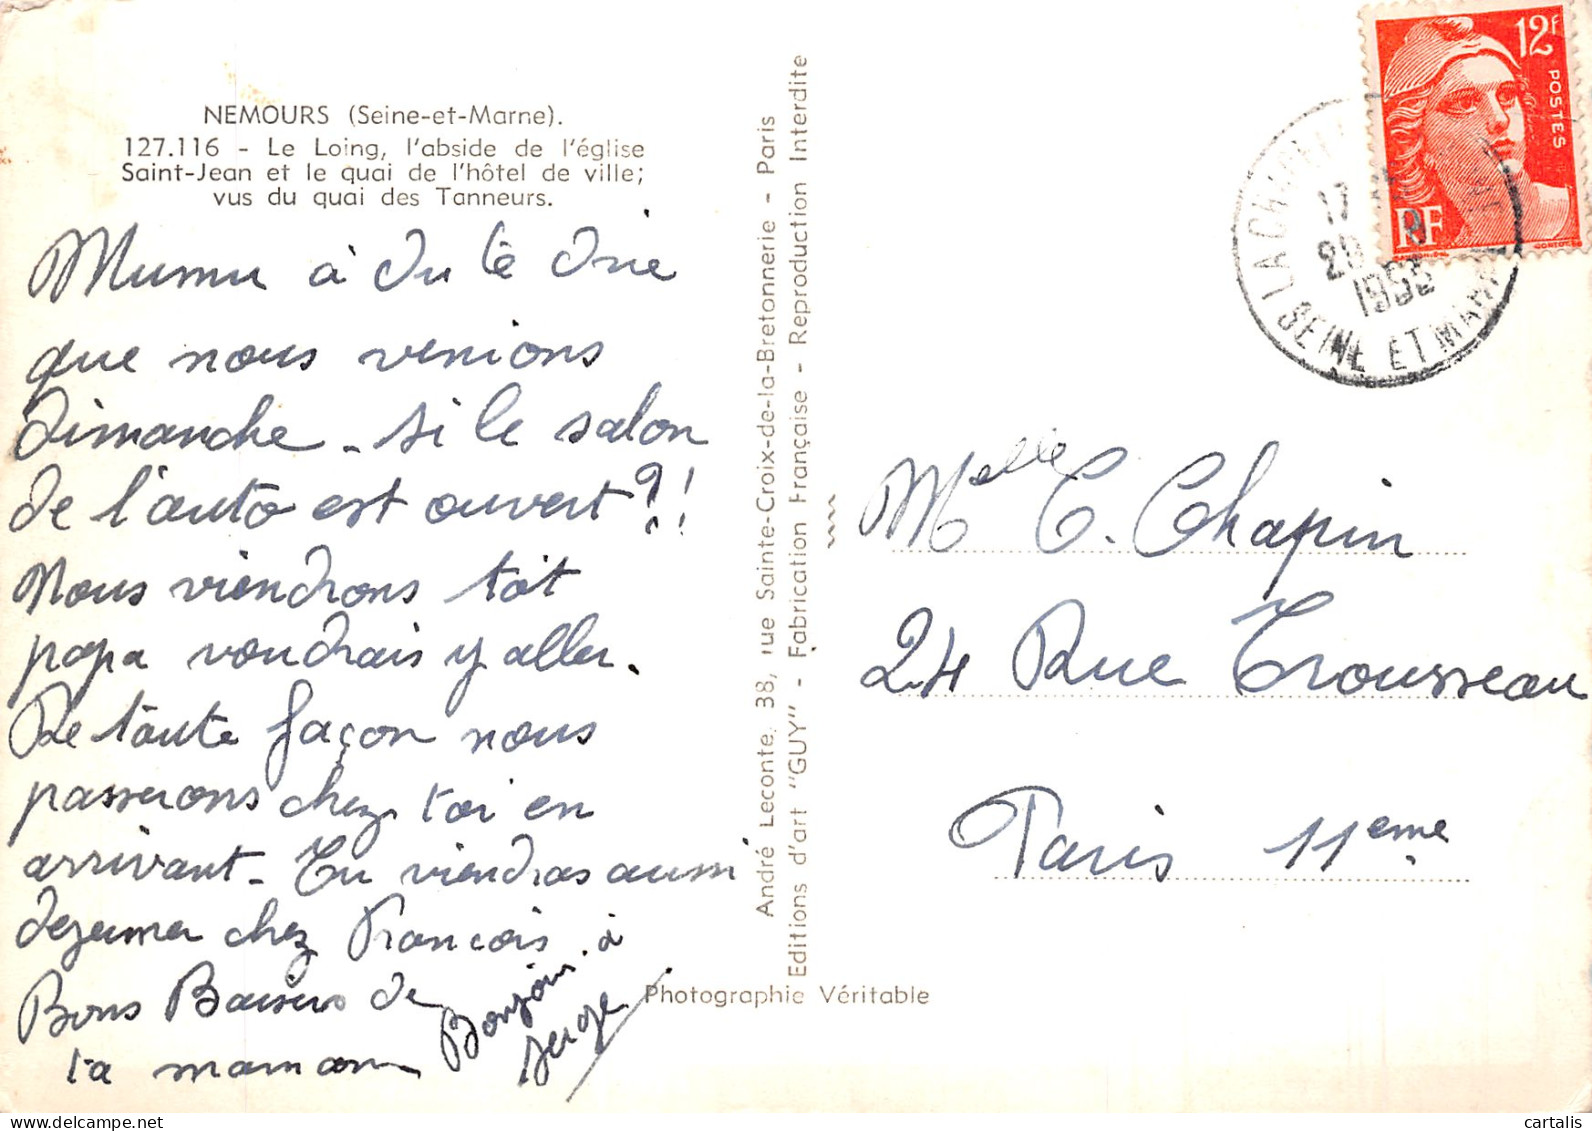 NEMOURS (Seine-et-Marne).
127.116 - Le Loing, l'abside de l'église
Saint-Jean et le quai de l'hôtel de ville;
vus du quai des Tanneurs.
Mumu à du te dire
que nous venions
dimanche - si le salon
de l'auto est ouvert ?!
Nous viendrons tôt
papa voudrais y aller.
De toute façon nous
passerons chez toi en
arrivant - Tu viendras aussi
dejeuner chez Francois
Bons Baisers de
ta maman
Bonjour à
Serge
André Leconte, 38, rue Sainte-Croix-de-la-Bretonnerie - Paris
Editions d'art "GUY" - Fabrication Française - Reproduction Interdite
Photographie Véritable
12F
POSTES
RF
LA CHAPELLE
17
1953
SEINE ET MARNE
Melle C. Chapin
24 Rue Trousseau
Paris 11eme
cartalis